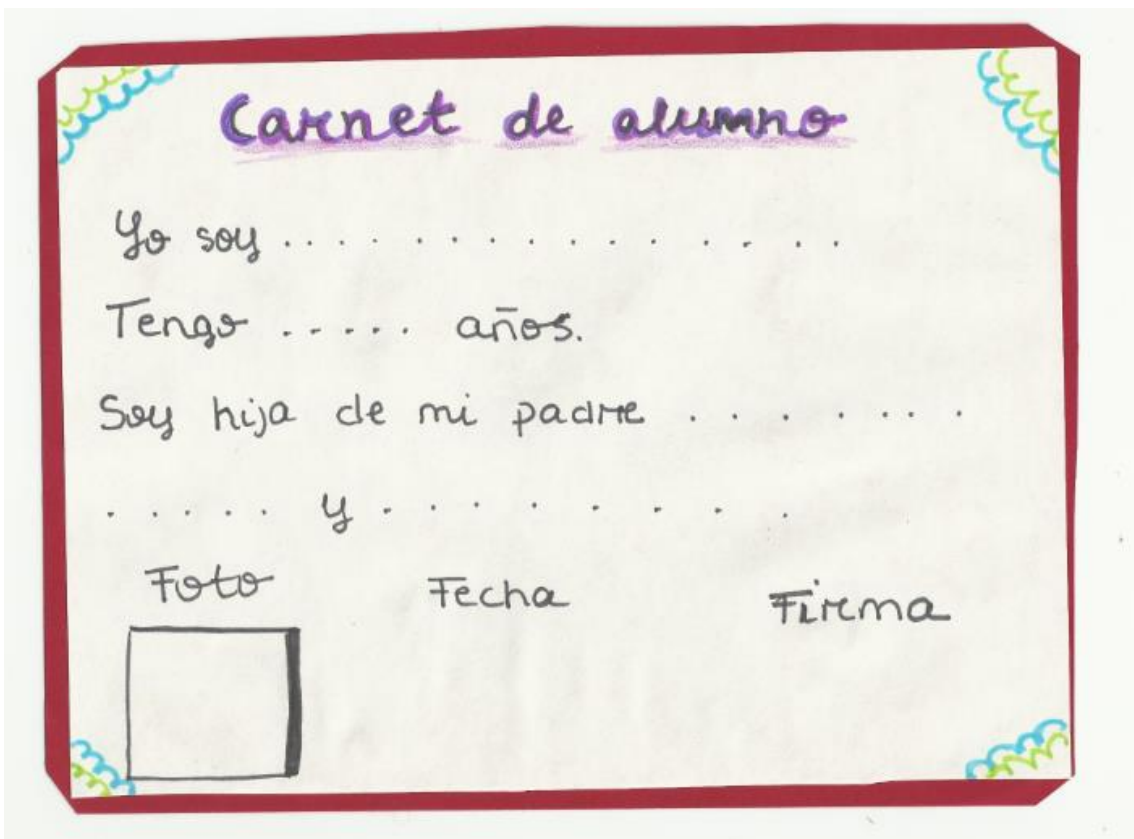 Carnet de alumno
Yo soy . . . . . . . . . . . . . . . .
Tengo . . . . . años.
Soy hija de mi padre . . . . . . . .
. . . . . y . . . . . . . . .
Foto Fecha Firma